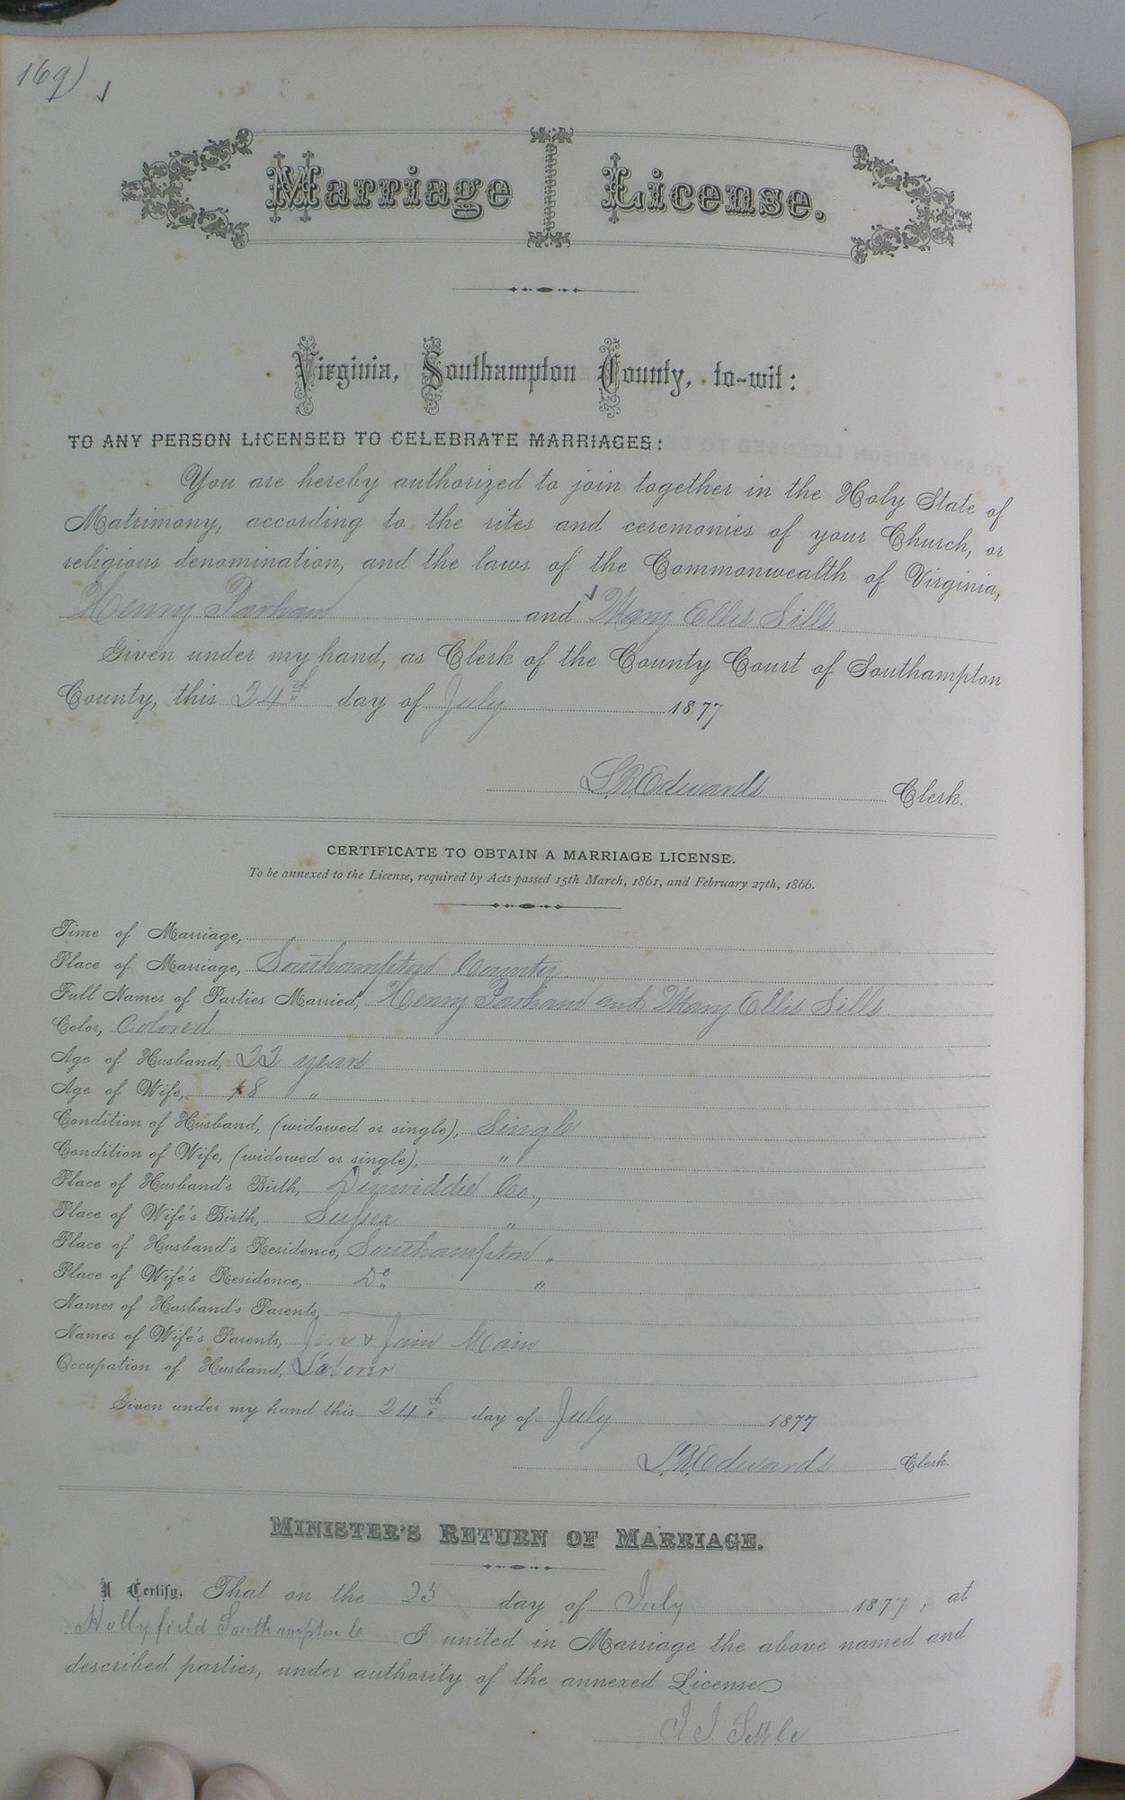 169)
Marriage License.
Virginia, Southampton County, to-wit:
TO ANY PERSON LICENSED TO CELEBRATE MARRIAGES:
You are hereby authorized to join together in the Holy State of
Matrimony, according to the rites and ceremonies of your Church, or
religious denomination, and the laws of the Commonwealth of Virginia,
Henry Parham and Mary Ellis Sills
Given under my hand, as Clerk of the County Court of Southampton
County, this 24th day of July 1877
L.R. Edwards Clerk.
CERTIFICATE TO OBTAIN A MARRIAGE LICENSE.
To be annexed to the License, required by Acts passed 15th March, 1861, and February 27th, 1866.
Time of Marriage,
Place of Marriage, Southampton County
Full Names of Parties Married, Henry Parham and Mary Ellis Sills
Color, Colored
Age of Husband, 22 years
Age of Wife, 18 "
Condition of Husband, (widowed or single), Single
Condition of Wife, (widowed or single), "
Place of Husband's Birth, Dinwiddie Co.,
Place of Wife's Birth, Sussex "
Place of Husband's Residence, Southampton "
Place of Wife's Residence, Do "
Names of Husband's Parents,
Names of Wife's Parents, & Jain
Occupation of Husband, Laborer
Given under my hand this 24th day of July 1877
L.R. Edwards Clerk.
MINISTER'S RETURN OF MARRIAGE.
I Certify, That on the 25 day of July 1877, at
Hollyfield Southampton Co I united in Marriage the above named and
described parties, under authority of the annexed License.